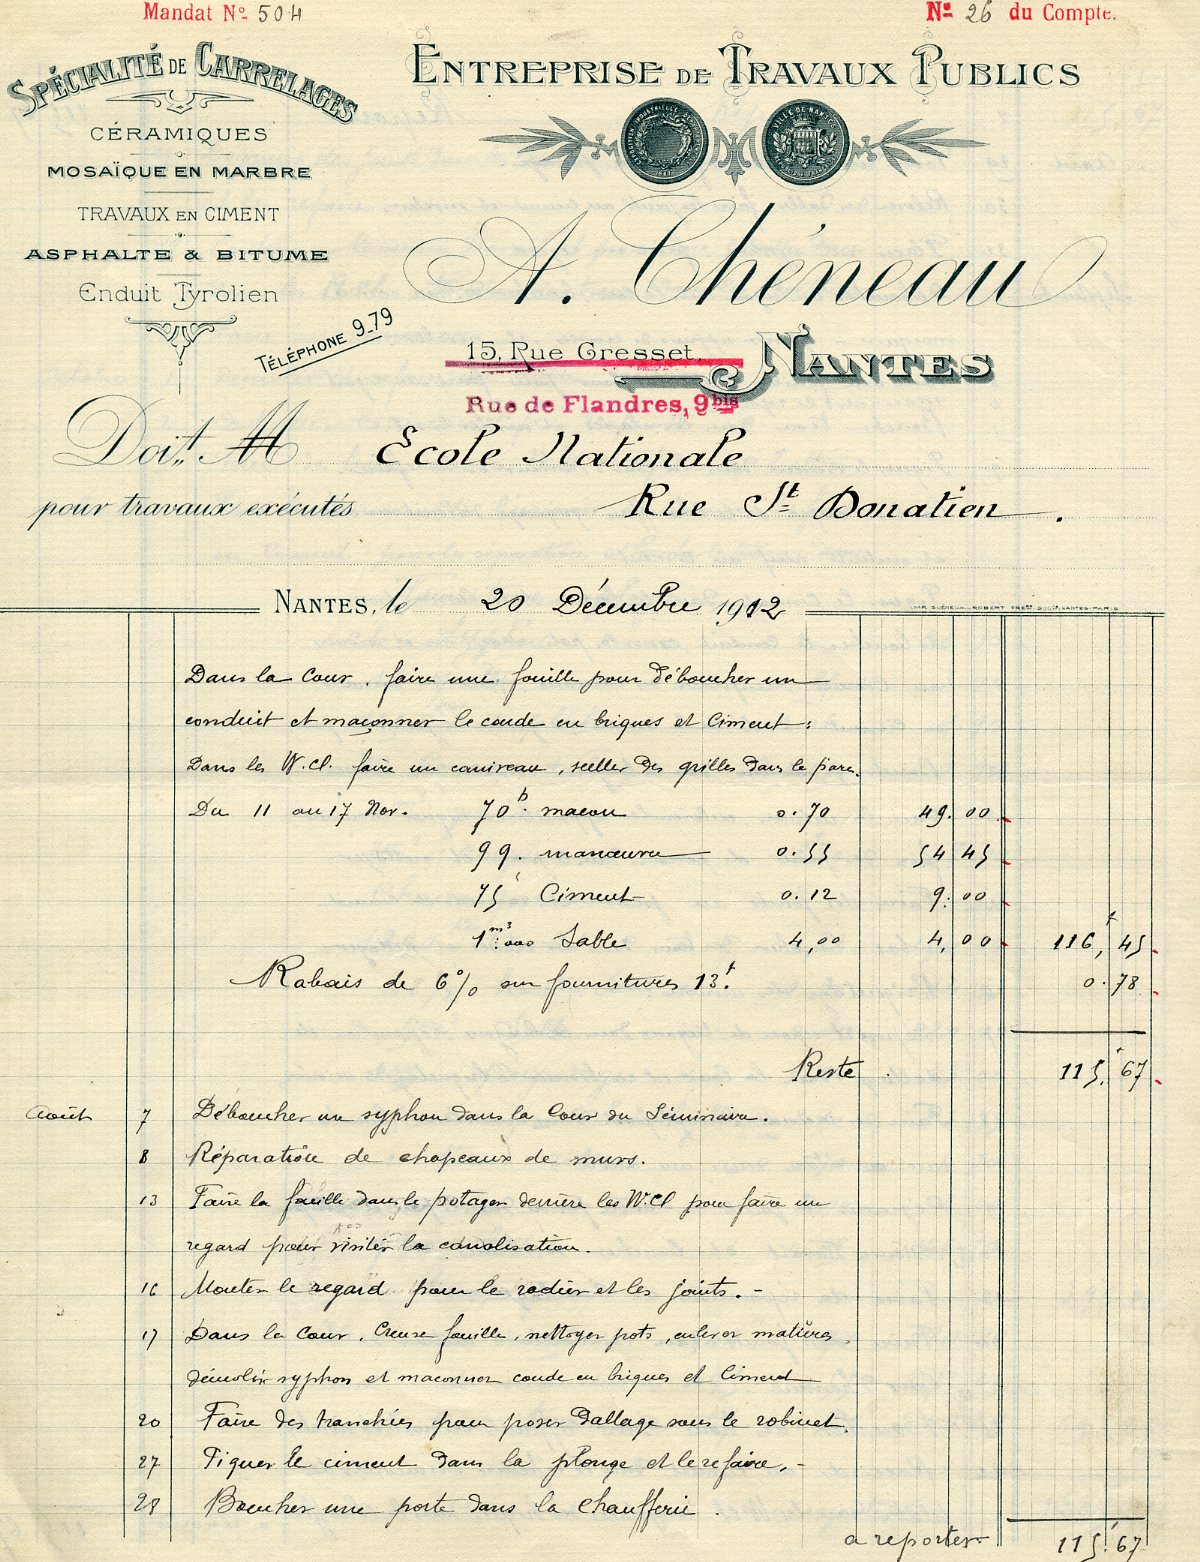 Mandat No 504
No 26 du Compte.
SPÉCIALITÉ DE CARRELAGES
CÉRAMIQUES
MOSAÏQUE EN MARBRE
TRAVAUX EN CIMENT
ASPHALTE & BITUME
Enduit Tyrolien
TÉLÉPHONE 9-79
ENTREPRISE DE TRAVAUX PUBLICS
A. Chéneau
15, Rue Gresset, NANTES
Rue de Flandres, 9 bis
Doit M Ecole Nationale
pour travaux exécutés Rue St Donatien.
NANTES, le 20 Décembre 1912
Dans la Cour, faire une fouille pour déboucher un
conduit et maçonner le coude en briques et Ciment:
Dans les W.Cl. faire un caniveau, sceller des grilles dans le
Du 11 au 17 Nov. 70 h. macon 0.70 49.00
99. manœuvre 0.55 54 45
75 Ciment 0.12 9.00
1 m3 000 Sable 4,00 4,00 116f,45
Rabais de 6% sur fournitures 13f. 0.78
Reste 115f.67
Août 7 Déboucher un syphon dans la Cour du Séminaire.
8 Réparation de chapeaux de murs.
13 Faire la fouille dans le potager derrière les W.Cl pour faire un
regard pour visiter la canalisation.
16 Monter le regard pour le radier et les joints. -
17 Dans la Cour, Creuse fouille, nettoyer pots, enlever matières,
démolir syphon et maconner coude en briques et Ciment
20 Faire des tranchées pour poser dallage sous le robinet.
27 Piquer le ciment dans la plonge et le refaire. -
28 Boucher une porte dans la Chaufferie.
a reporter 115f.67